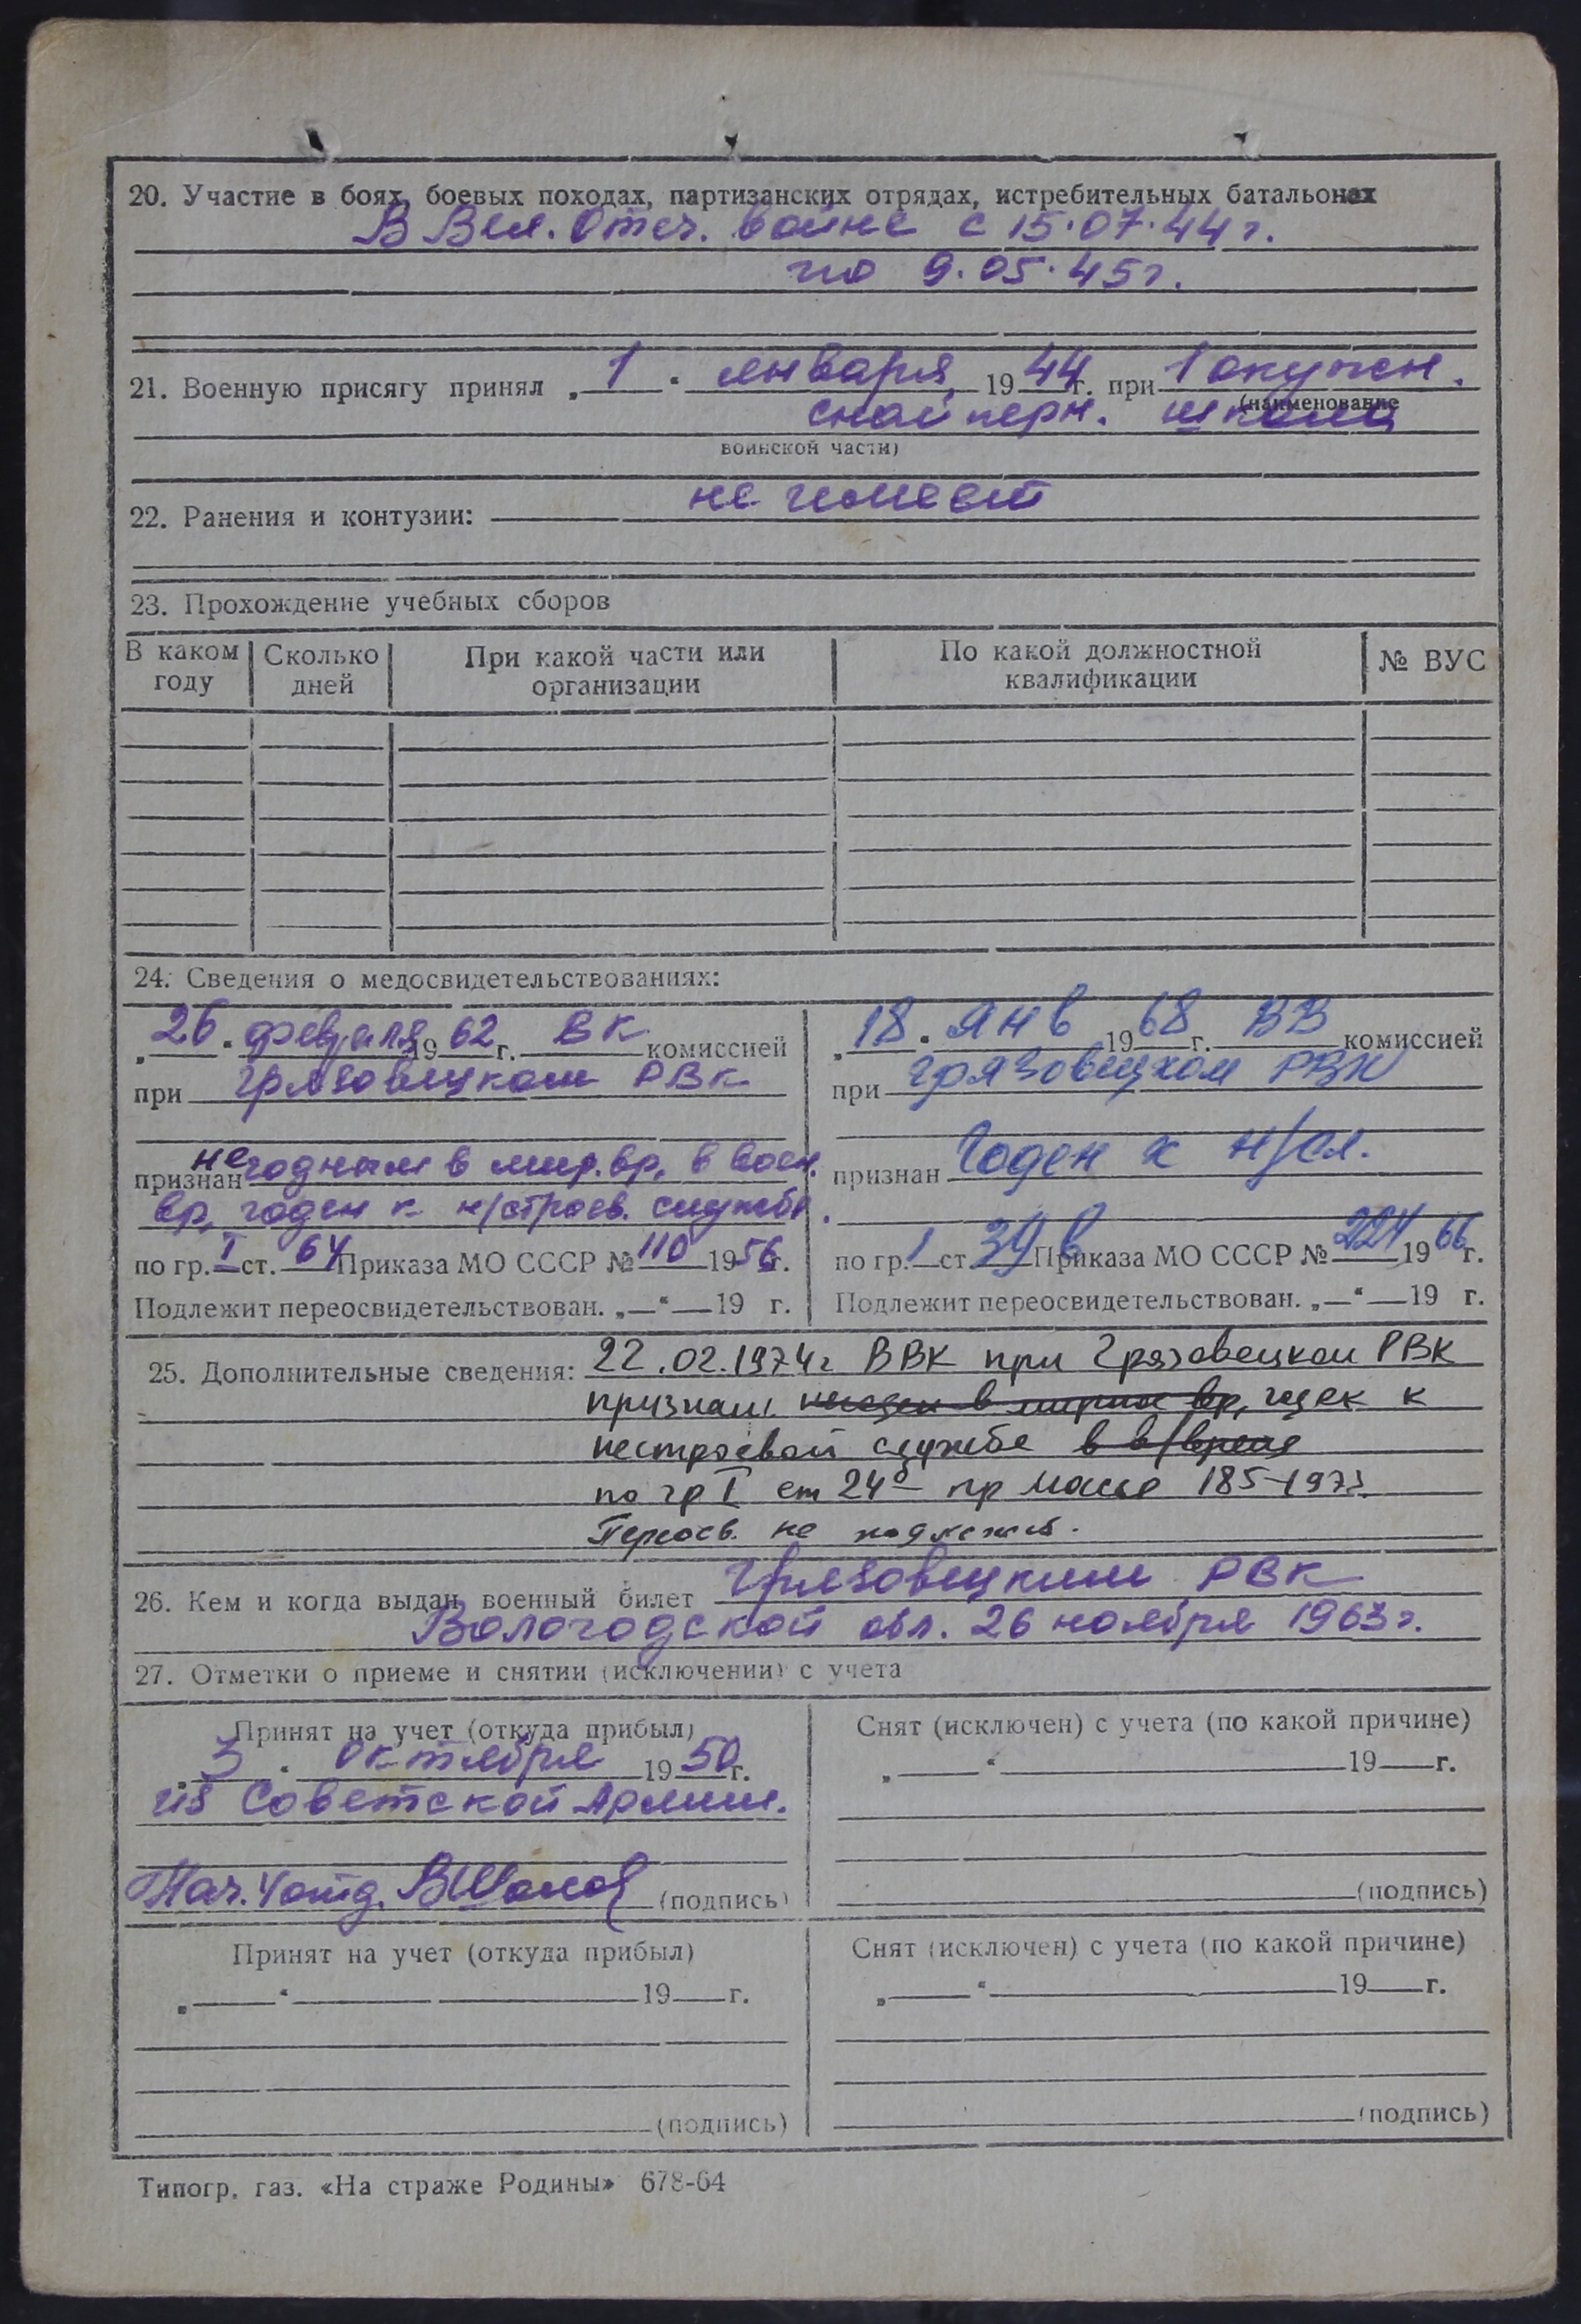 20. Участие в боях, боевых походах, партизанских отрядах, истребительных батальонах
В Вел. Отеч. войне с 15.07.44 г.
по 9.05.45 г.
21. Военную присягу принял „1“ января 1944 г. при 1 окружн.
(наименование
снайперн. школа
воинской части)
22. Ранения и контузии: не имеет
23. Прохождение учебных сборов
В каком году | Сколько дней | При какой части или организации | По какой должностной квалификации | № ВУС
24. Сведения о медосвидетельствованиях:
„26“ февраля 1962 г. ВК комиссией
при Грязовецком РВК
признан негодным в мир. вр., в воен.
вр. годен к н/строев. службе.
по гр. I ст. 64 Приказа МО СССР № 110 1956 г.
Подлежит переосвидетельствован. „—“ — 19 г.
„18“ янв 1968 г. ВВ комиссией
при Грязовецком РВК
признан Годен к н/сл.
по гр. 1 ст. 39 в Приказа МО СССР № 224 1966 г.
Подлежит переосвидетельствован. „—“ — 19 г.
25. Дополнительные сведения: 22.02.1974 г ВВК при Грязовецком РВК
признан негоден в мирное вр, годен к
нестроевой службе в в/время
по гр I ст 24 пр 185-1973
Переосв. не подлежит.
26. Кем и когда выдан военный билет Грязовецким РВК
Вологодской обл. 26 ноября 1963 г.
27. Отметки о приеме и снятии (исключении) с учета
Принят на учет (откуда прибыл)
„3“ октября 1950 г.
из Советской Армии.
Нач. 4 отд. (подпись)
Снят (исключен) с учета (по какой причине)
„ “ 19 г.
(подпись)
Принят на учет (откуда прибыл)
„ “ 19 г.
(подпись)
Снят (исключен) с учета (по какой причине)
„ “ 19 г.
(подпись)
Типогр. газ. «На страже Родины» 678-64